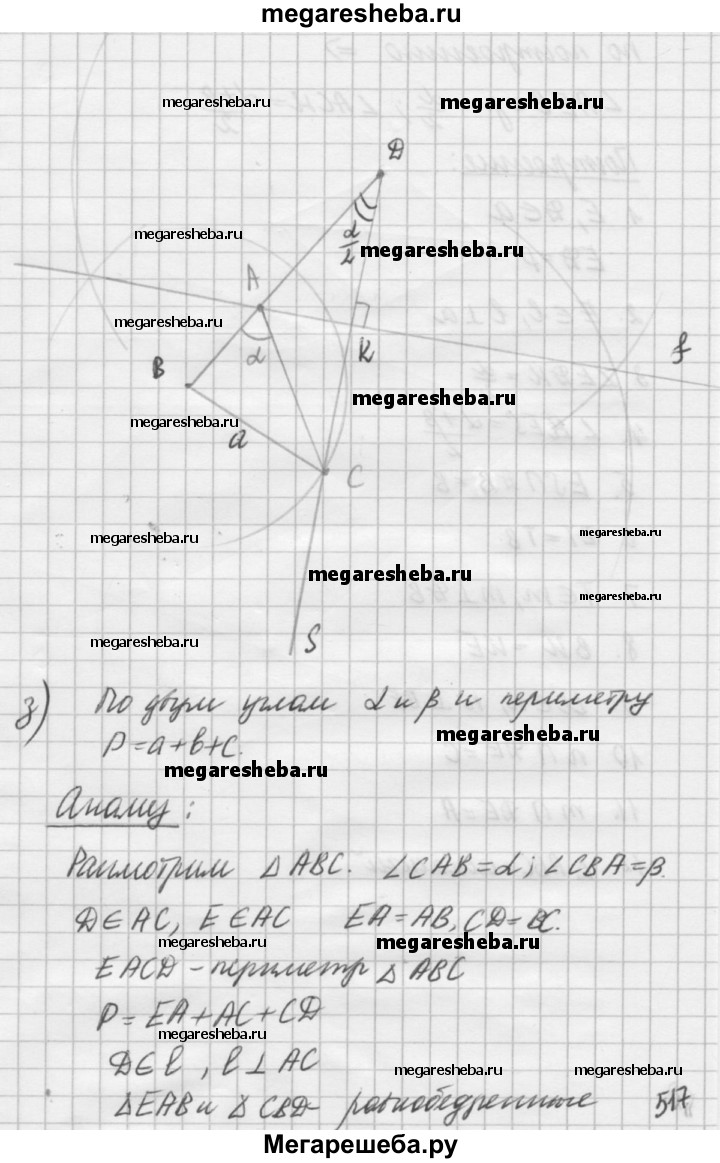 megaresheba.ru
megaresheba.ru
megaresheba.ru
D
megaresheba.ru
α/2
megaresheba.ru
A
megaresheba.ru
α
K
f
B
megaresheba.ru
megaresheba.ru
a
C
megaresheba.ru
megaresheba.ru
megaresheba.ru
megaresheba.ru
megaresheba.ru
S
з) По двум углам α и β и периметру
megaresheba.ru
P=a+b+c.
megaresheba.ru
Анализ:
Рассмотрим △ABC. ∠CAB=α; ∠CBA=β.
D∈AC, E∈AC EA=AB, CD=BC.
megaresheba.ru
megaresheba.ru
EACD - периметр △ABC
P=EA+AC+CD
megaresheba.ru
D∈l, l⊥AC
megaresheba.ru
megaresheba.ru
△EAB и △CBD - равнобедренные
517
Мегарешеба.ру